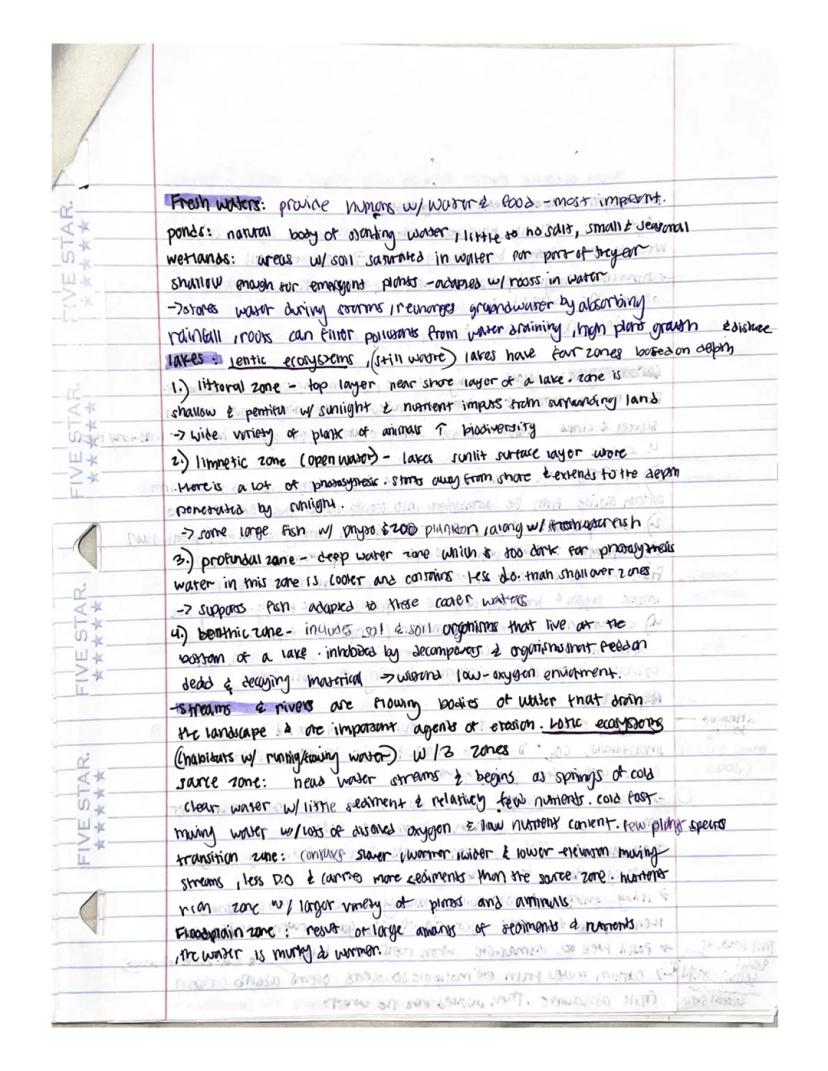 Fresh waters: provide humans w/ water & food - most important.
ponds: natural body of standing water, little to no salt, small & seasonal
wetlands: areas w/ soil saturated in water for part of the year
shallow enough for emergent plants - adapted w/ roots in water
->stores water during storms, recharges groundwater by absorbing
rainfall, roots can filter pollutants from water draining, high plant growth &
lakes: lentic ecosystems, (still water) lakes have four zones based on depth
1.) littoral zone - top layer near shore layer of a lake. zone is
shallow & plentiful w/ sunlight & nutrient inputs from surrounding land
-> wide variety of plants of animals ↑ biodiversity
2.) limnetic zone (open water) - lakes sunlit surface layer where
there is a lot of photosynthesis. starts away from shore & extends to the depth
penetrated by sunlight.
-> some large fish w/ phyto & zoo plankton, along w/
3.) profundal zone - deep water zone which is too dark for photosynthesis
water in this zone is cooler and contains less d.o. than shallower zones
-> supports fish adapted to these cooler waters
4.) benthic zone - includes soil & soil organisms that live at the
bottom of a lake. inhabited by decomposers & organisms that feed on
dead & decaying material -> low-oxygen environment.
streams & rivers are flowing bodies of water that drain
the landscape & are important agents of erosion. Lotic ecosystems
(habitats w/ running/flowing water) w/ 3 zones
source zone: head water streams & begins as springs of cold
clear water w/ little sediment & relatively few nutrients. cold fast-
moving water w/ lots of disolved oxygen & low nutrient content. few plant species
transition zone: contains slower, warmer, wider & lower-elevation moving
streams, less D.O & carries more sediments than the source zone. nutrient
rich zone w/ larger variety of plants and animals
Floodplain zone: result of large amounts of sediments & nutrients
, the water is murky & warmer.
FIVE STAR.
FIVE STAR.
FIVE STAR.
FIVE STAR.